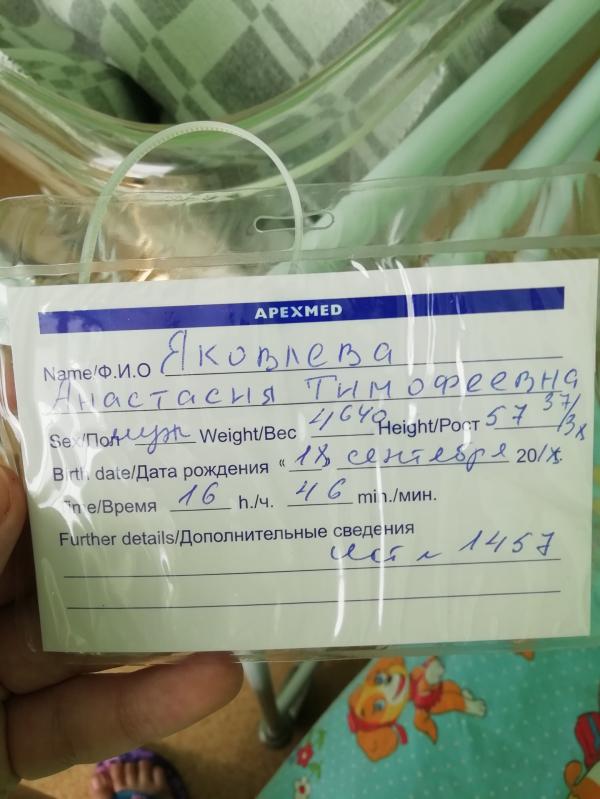 APEXMED
Name/Ф.И.О Яковлева
Анастасия Тимофеевна
Sex/Пол муж Weight/Вес 4640 Height/Рост 57 37/
Birth date/Дата рождения « 18 сентября 20/
Time/Время 16 h./ч. 46 min./мин.
Further details/Дополнительные сведения
ист № 1457